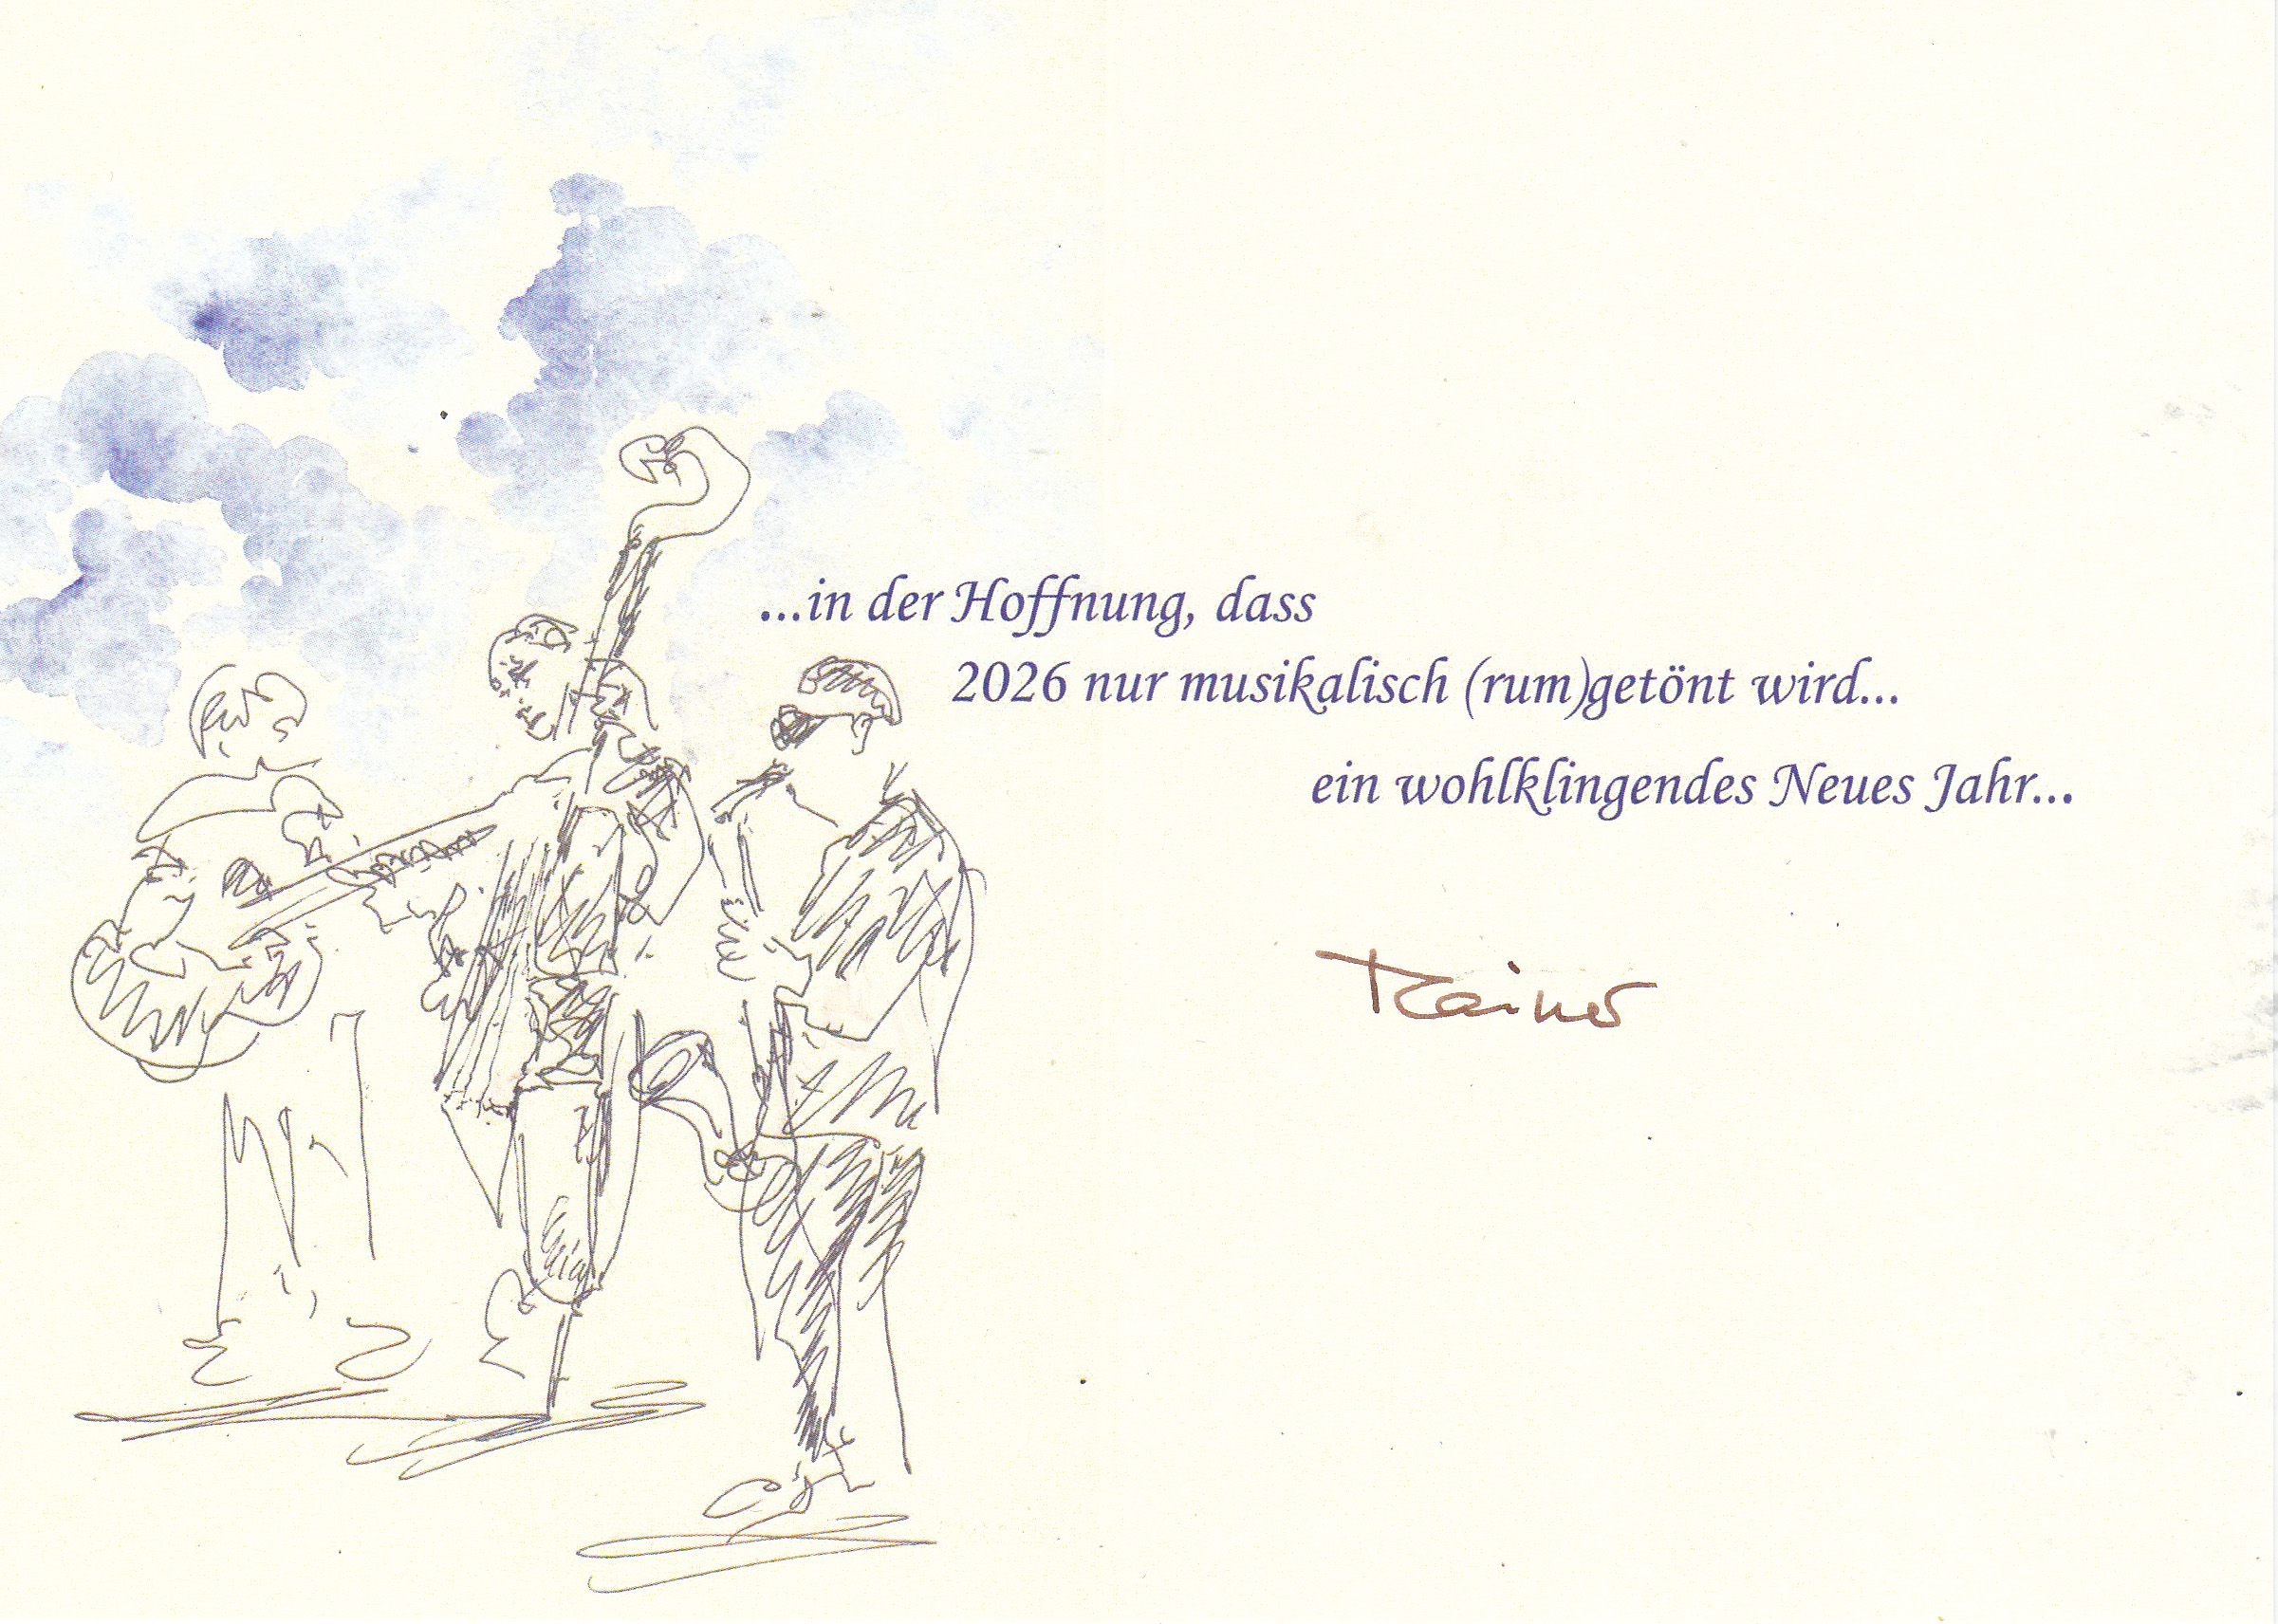 ...in der Hoffnung, dass
2026 nur musikalisch (rum)getönt wird...
ein wohlklingendes Neues Jahr...
Rainer